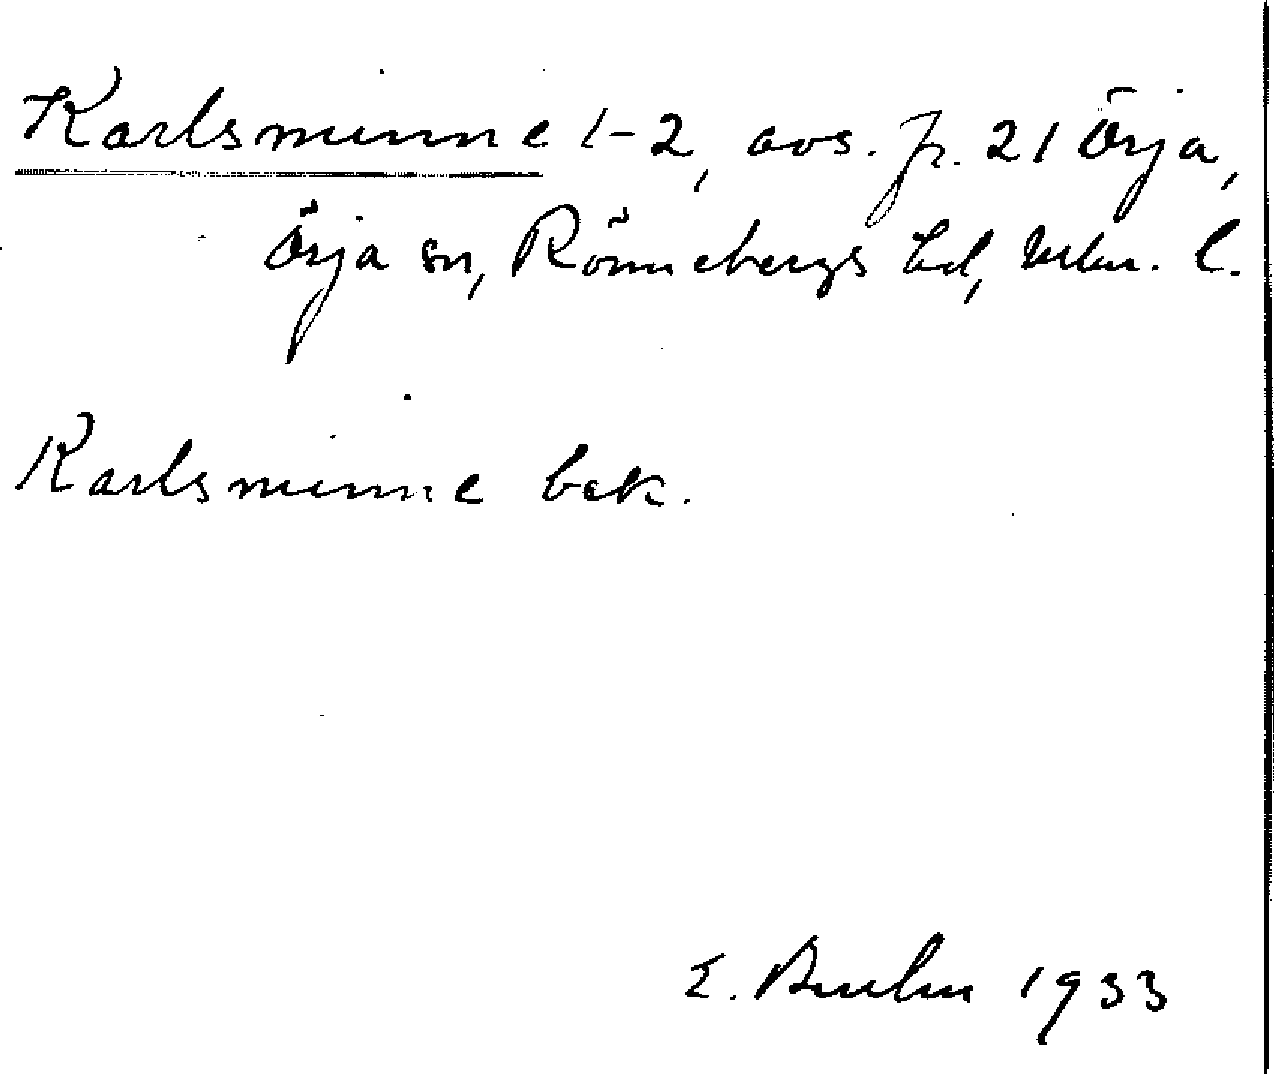 Karlsminne 1-2, avs. fr. 21 Örja,
Örja sn, Rönnebergs hd, Mlm. l.
Karlsminne bek.
E. Bruhn 1933